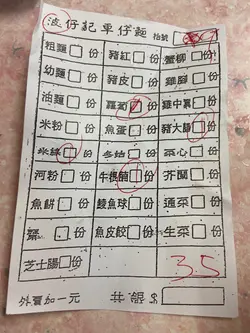 波仔記車仔麵 枱號
粗麵 份 豬紅 份 蟹柳 份
幼麵 份 豬皮 份 雞腳 份
油麵 份 蘿蔔 份 雞中翼 份
米粉 份 魚蛋 份 豬大腸 份
米線 份 份 菜心 份
河粉 份 牛根腩 份 芥蘭 份
魚餅 份 鯪魚球 份 通菜 份
份 魚皮餃 份 生菜 份
芝士腸 份
35
外賣加一元 共銀$